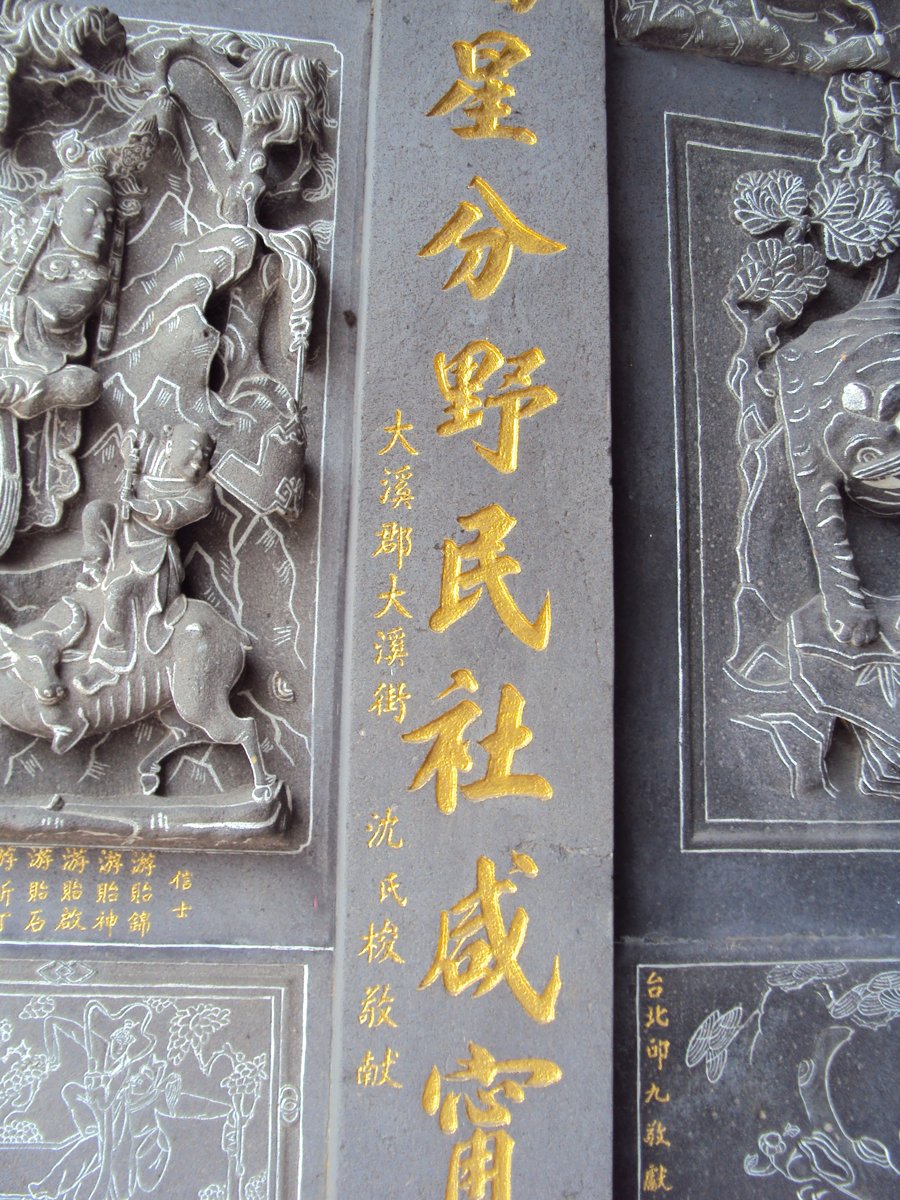 台北邱九敬獻
星分野民社咸甯
大溪郡大溪街 沈氏梭敬献
信士
游貽錦
游貽神
游貽啟
游貽石